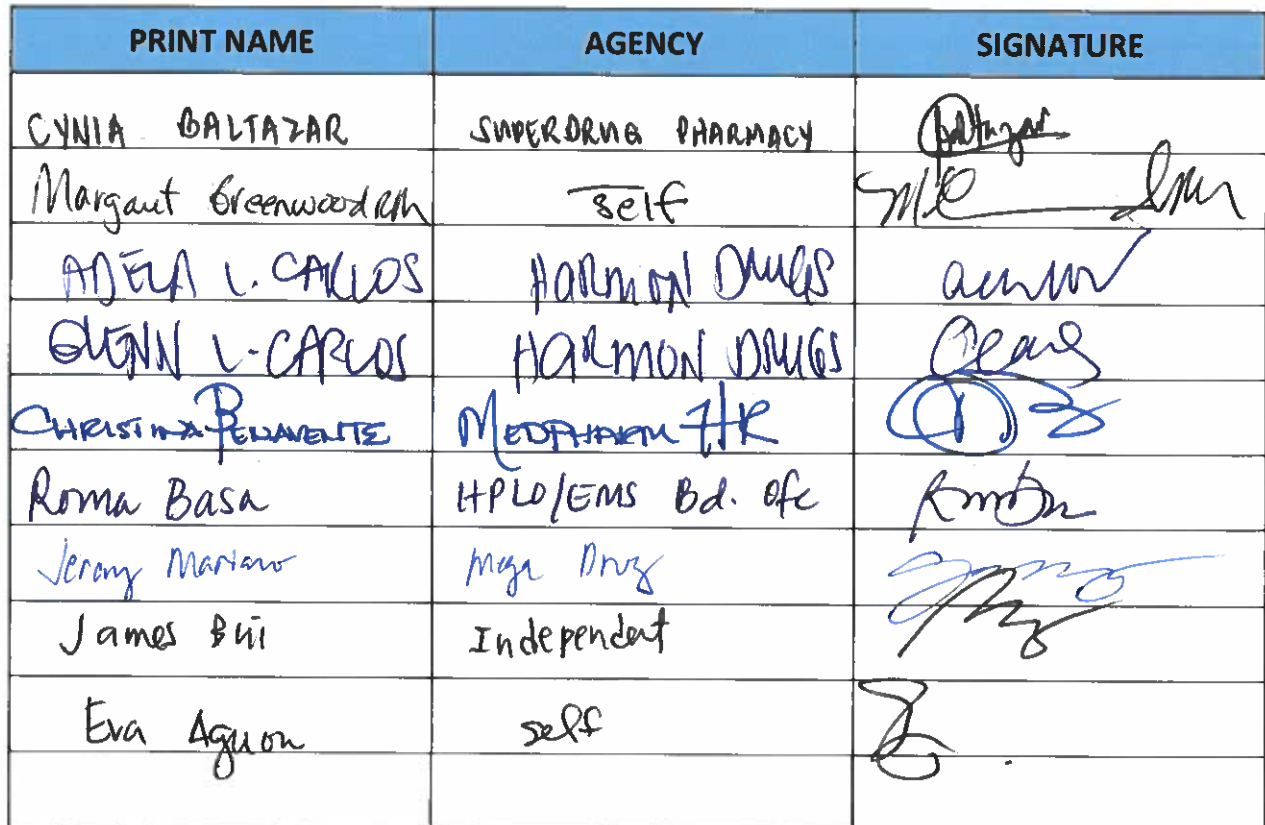 PRINT NAME AGENCY SIGNATURE
CYNIA BALTAZAR SUPERDRUG PHARMACY Baltazar
Margaut Greenwood self
ADELA L. CARLOS HARMON DRUGS
GLENN L. CARLOS HARMON DRUGS
CHRISTINA BENAVENTE MEDPHARM HR
Roma Basa HPLO/EMS Bd. Ofc
Jeramy Mariano Mega Drug
James Bui Independent
Eva Aguon self